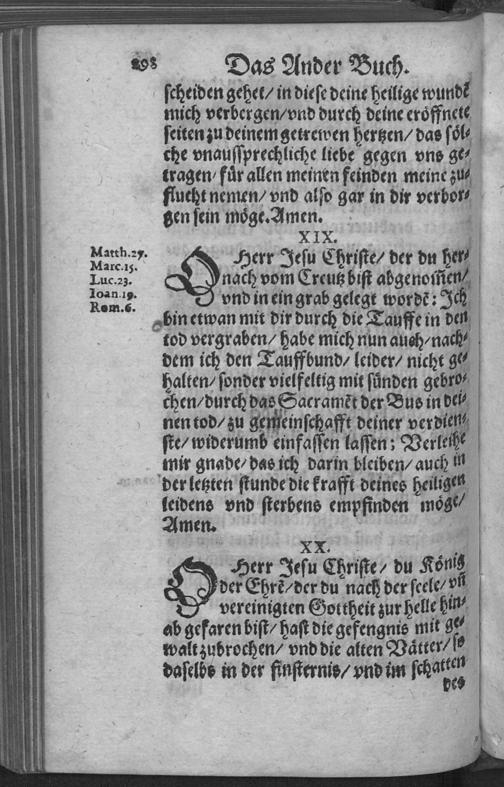 298 Das Ander Buch.
scheiden gehet/ in diese deine heilige wundē
mich verbergen/vnd durch deine eröffnete
seiten zu deinem getrewen hertzen/ das söl-
che vnaussprechliche liebe gegen vns ge-
tragen/ für allen meinen feinden meine zu-
flucht nemen/ vnd also gar in dir verbor-
gen sein möge. Amen.
XIX.
Matth.27.
Marc.15.
Luc.23.
Ioan.19.
Rom.6.
O Herr Jesu Christe/ der du her-
nach vom Creutz bist abgenom̄en/
vnd in ein grab gelegt wordē: Ich
bin etwan mit dir durch die Tauffe in den
tod vergraben/ habe mich nun auch/ nach-
dem ich den Tauffbund/ leider/ nicht ge-
halten/ sonder vielfeltig mit sünden gebro-
chen/ durch das Sacramēt der Bus in dei-
nen tod/ zu gemeinschafft deiner verdien-
ste/ widerumb einfassen lassen; Verleihe
mir gnade/ das ich darin bleiben/ auch in
der letzten stunde die krafft deines heiligen
leidens vnd sterbens empfinden möge/
Amen.
XX.
O Herr Jesu Christe/ du König
der Ehrē/ der du nach der seele/ vn̄
vereinigten Gottheit zur helle hin-
ab gefaren bist/ hast die gefengnis mit ge-
walt zubrochen/ vnd die alten Vätter/ so
daselbs in der finsternis/ vnd im schatten
des